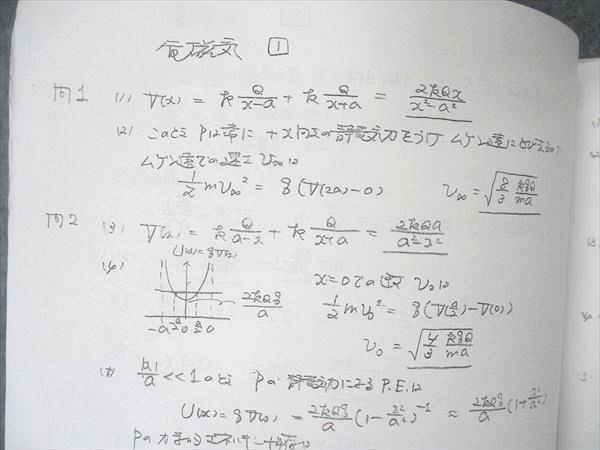 電磁気 1
問1 (1) V(x) = k Q/(x-a) + k Q/(x+a) = 2kQx/(x²-a²)
(2) このとき Pは常に +x向きの静電気力をうけ、ムゲン遠にとび去る。
ムゲン遠での速さ v∞は
1/2 mv∞² = q(V(2a)-0) v∞ = √(8/3 kqQ/ma)
問2 (3) V(x) = k Q/(a-x) + k Q/(x+a) = 2kQa/(a²-x²)
(4) U(x)=qV(x) x=0での速さ v₀は
2kQq/a 1/2 mv₀² = q(V(a/2)-V(0))
-a -a/2 0 a/2 a v₀ = √(4/3 kqQ/ma)
(5) |x|/a << 1のとき Pの静電気力によるP.E.は
U(x) = qV(x) = 2kQq/a (1 - x²/a²)⁻¹ ≈ 2kQq/a (1+x²/a²)
Pの力学的エネルギー